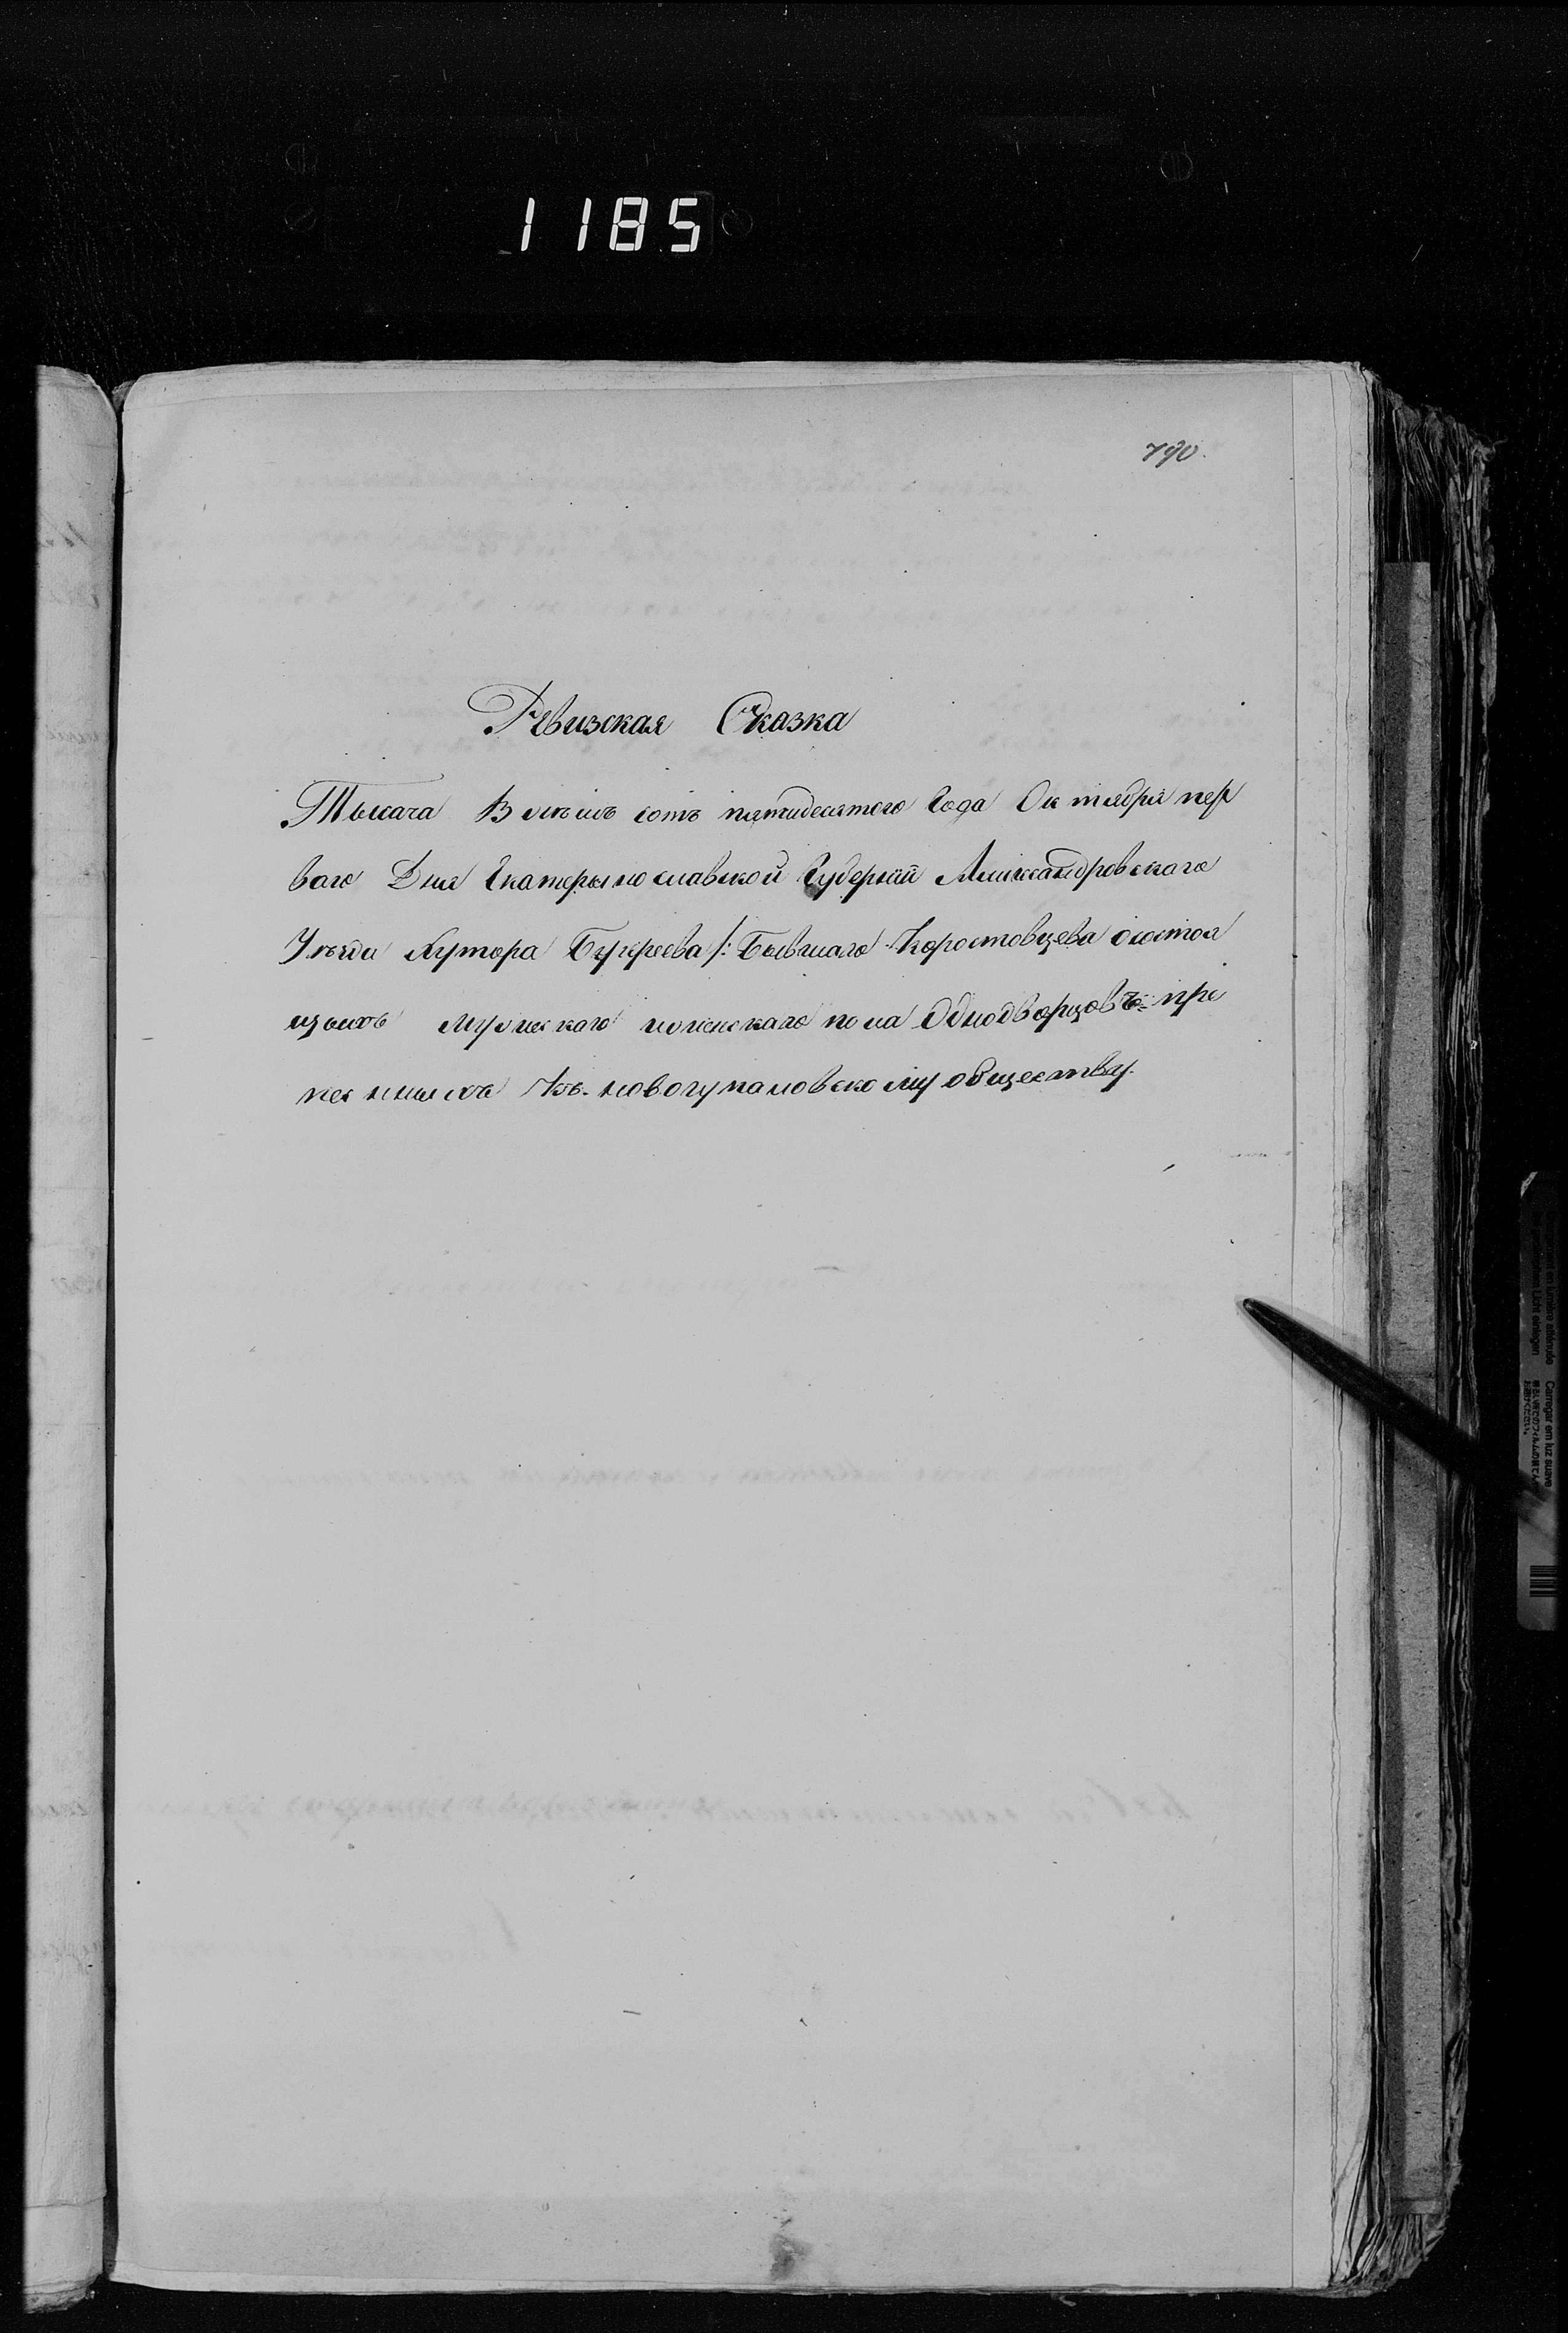 1185
790.
Ревизская Сказка
Тысяча Восемь сотъ пятидесятого Года Октября пер
ваго Дня Екатерынославской Губерніи Александровскаго
Уезда Хутора Бугреева /: Бывшаго Коростовцева о состоя
щыхъ мужескаго женскаго пола Однодворцовъ при
писныхъ Къ. новогупаловскому обществу.